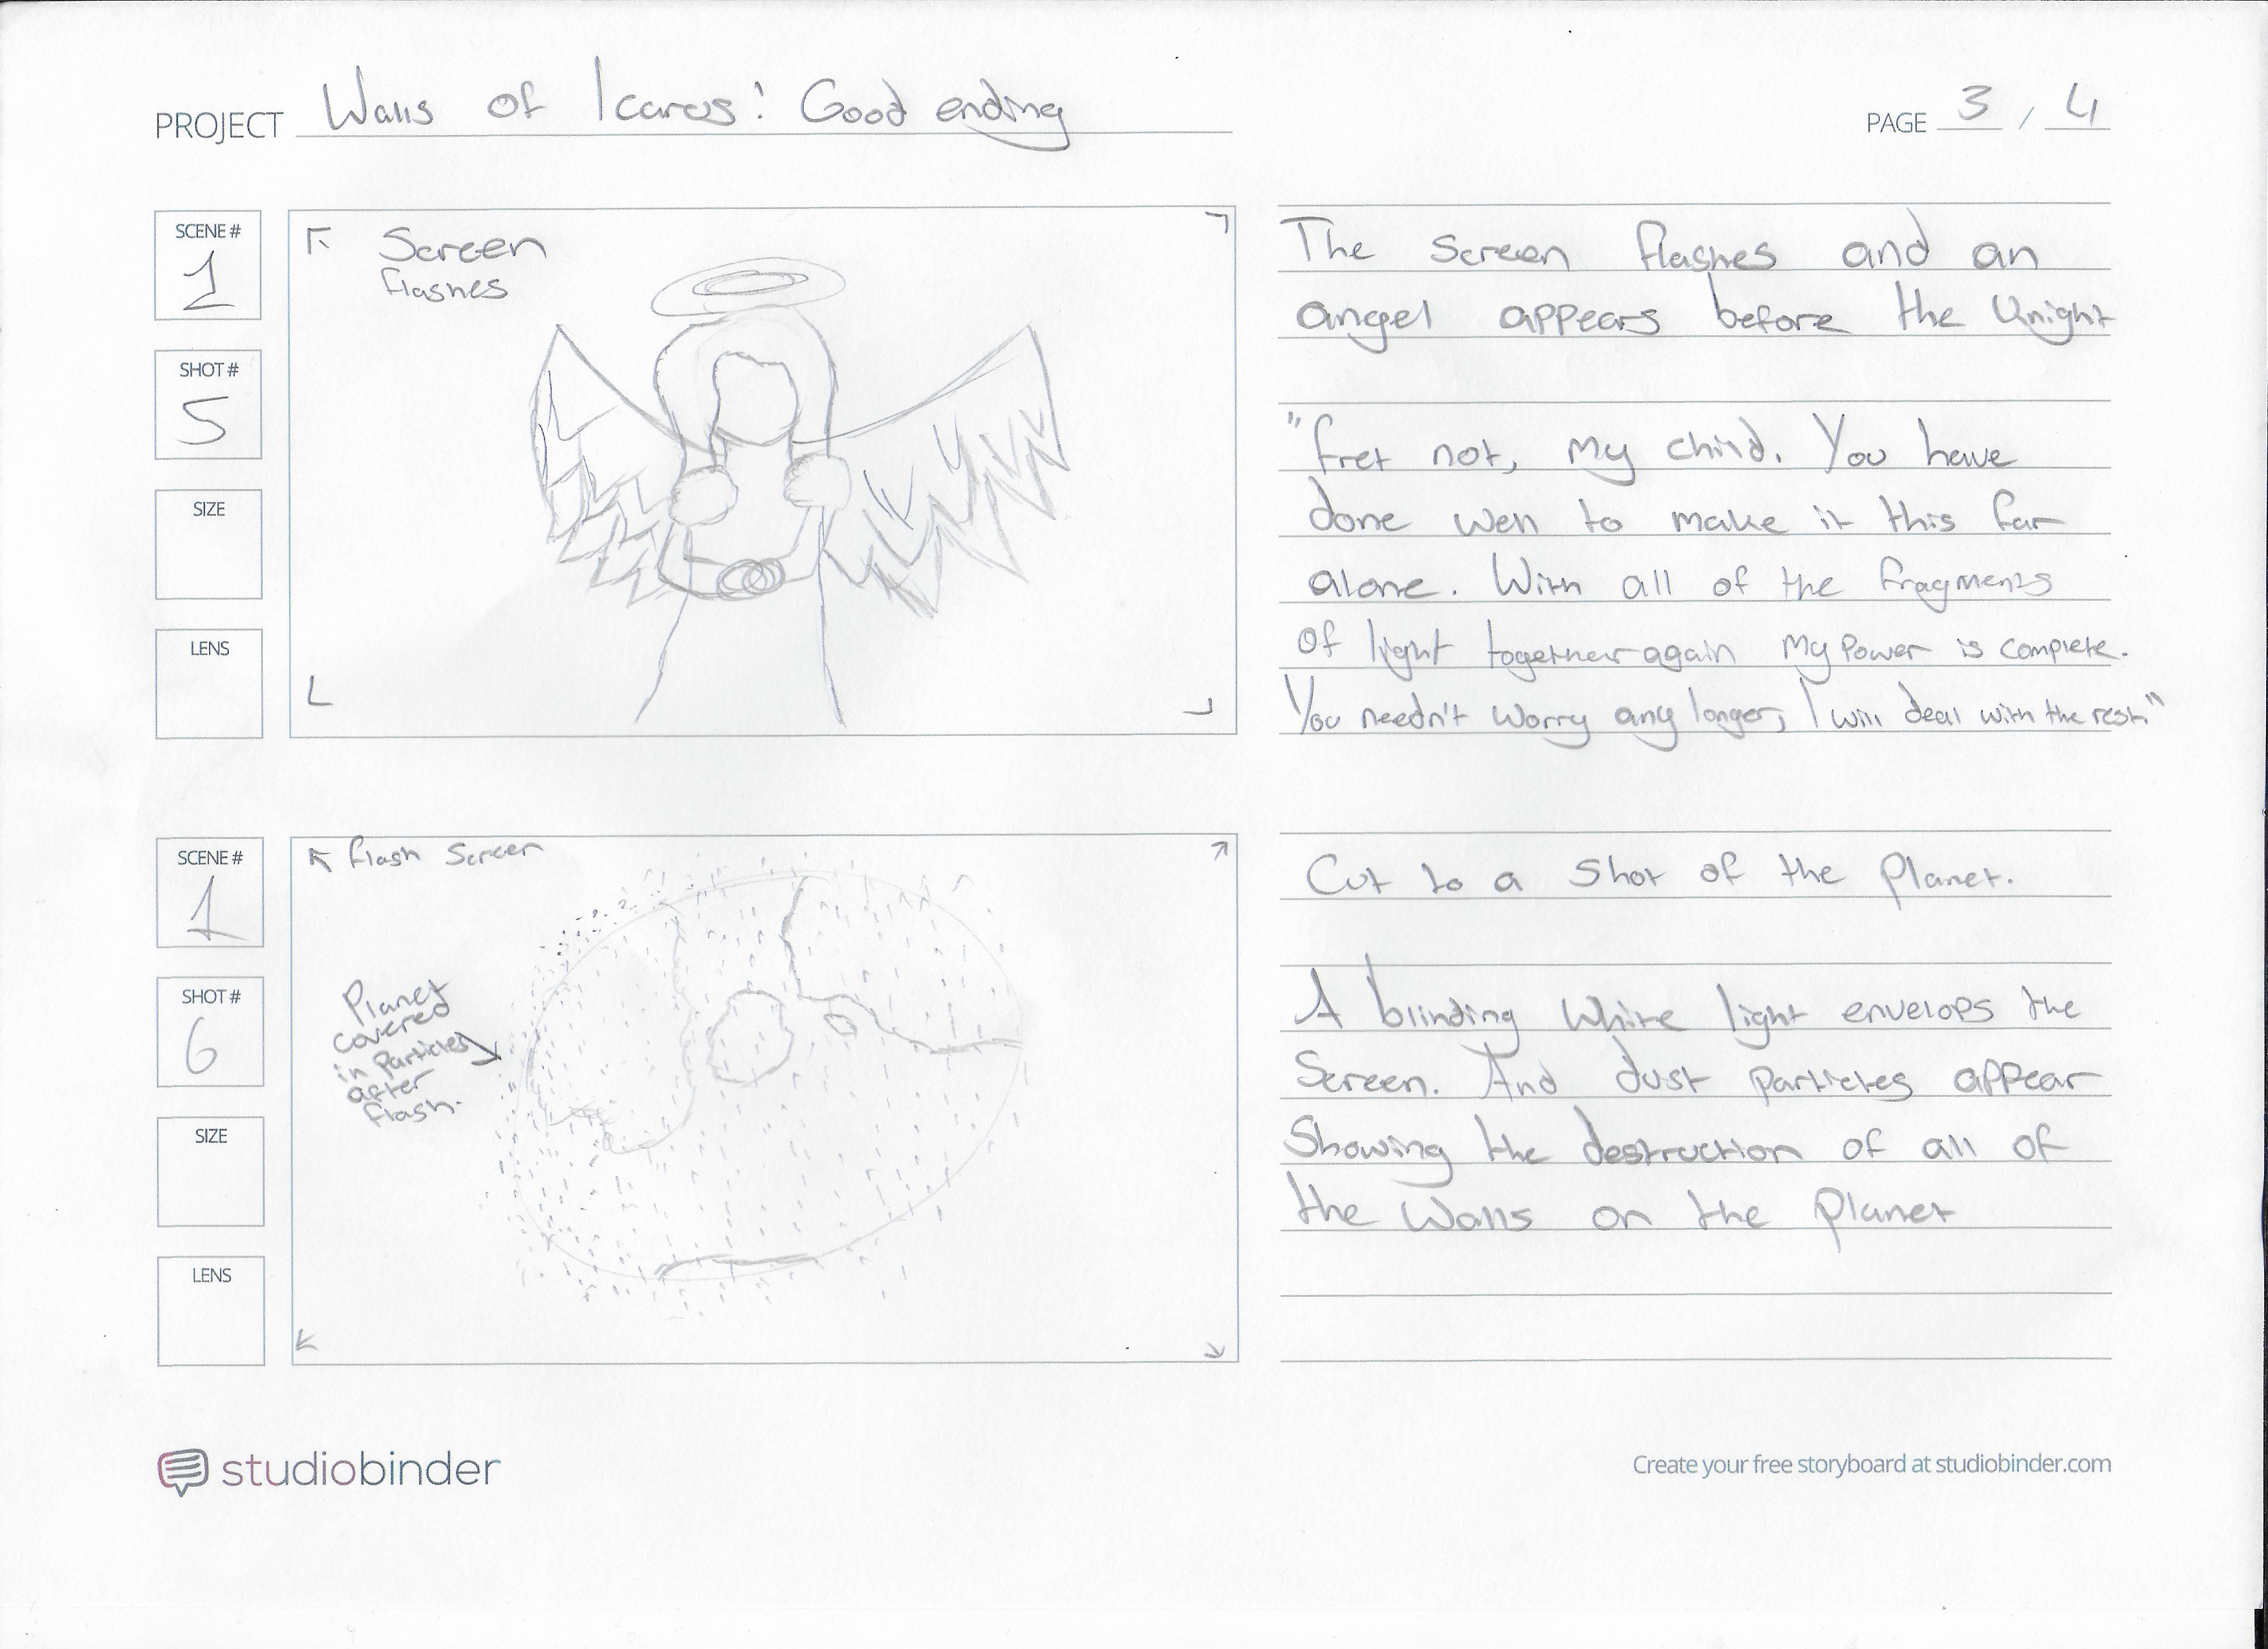 PROJECT Walls of Icarus: Good ending
PAGE 3 / 4
SCENE #
1
SHOT #
5
SIZE
LENS
Screen
flashes
The Screen flashes and an
angel appears before the Knight
"fret not, my child. You have
done well to make it this far
alone. With all of the fragments
of light together again my Power is complete.
You needn't worry any longer, I will deal with the rest"
SCENE #
1
SHOT #
6
SIZE
LENS
flash Screen
Planet
covered
in Particles
after
flash.
Cut to a Shot of the Planet.
A blinding White light envelops the
Screen. And dust particles appear
Showing the destruction of all of
the Walls on the Planet
studiobinder
Create your free storyboard at studiobinder.com